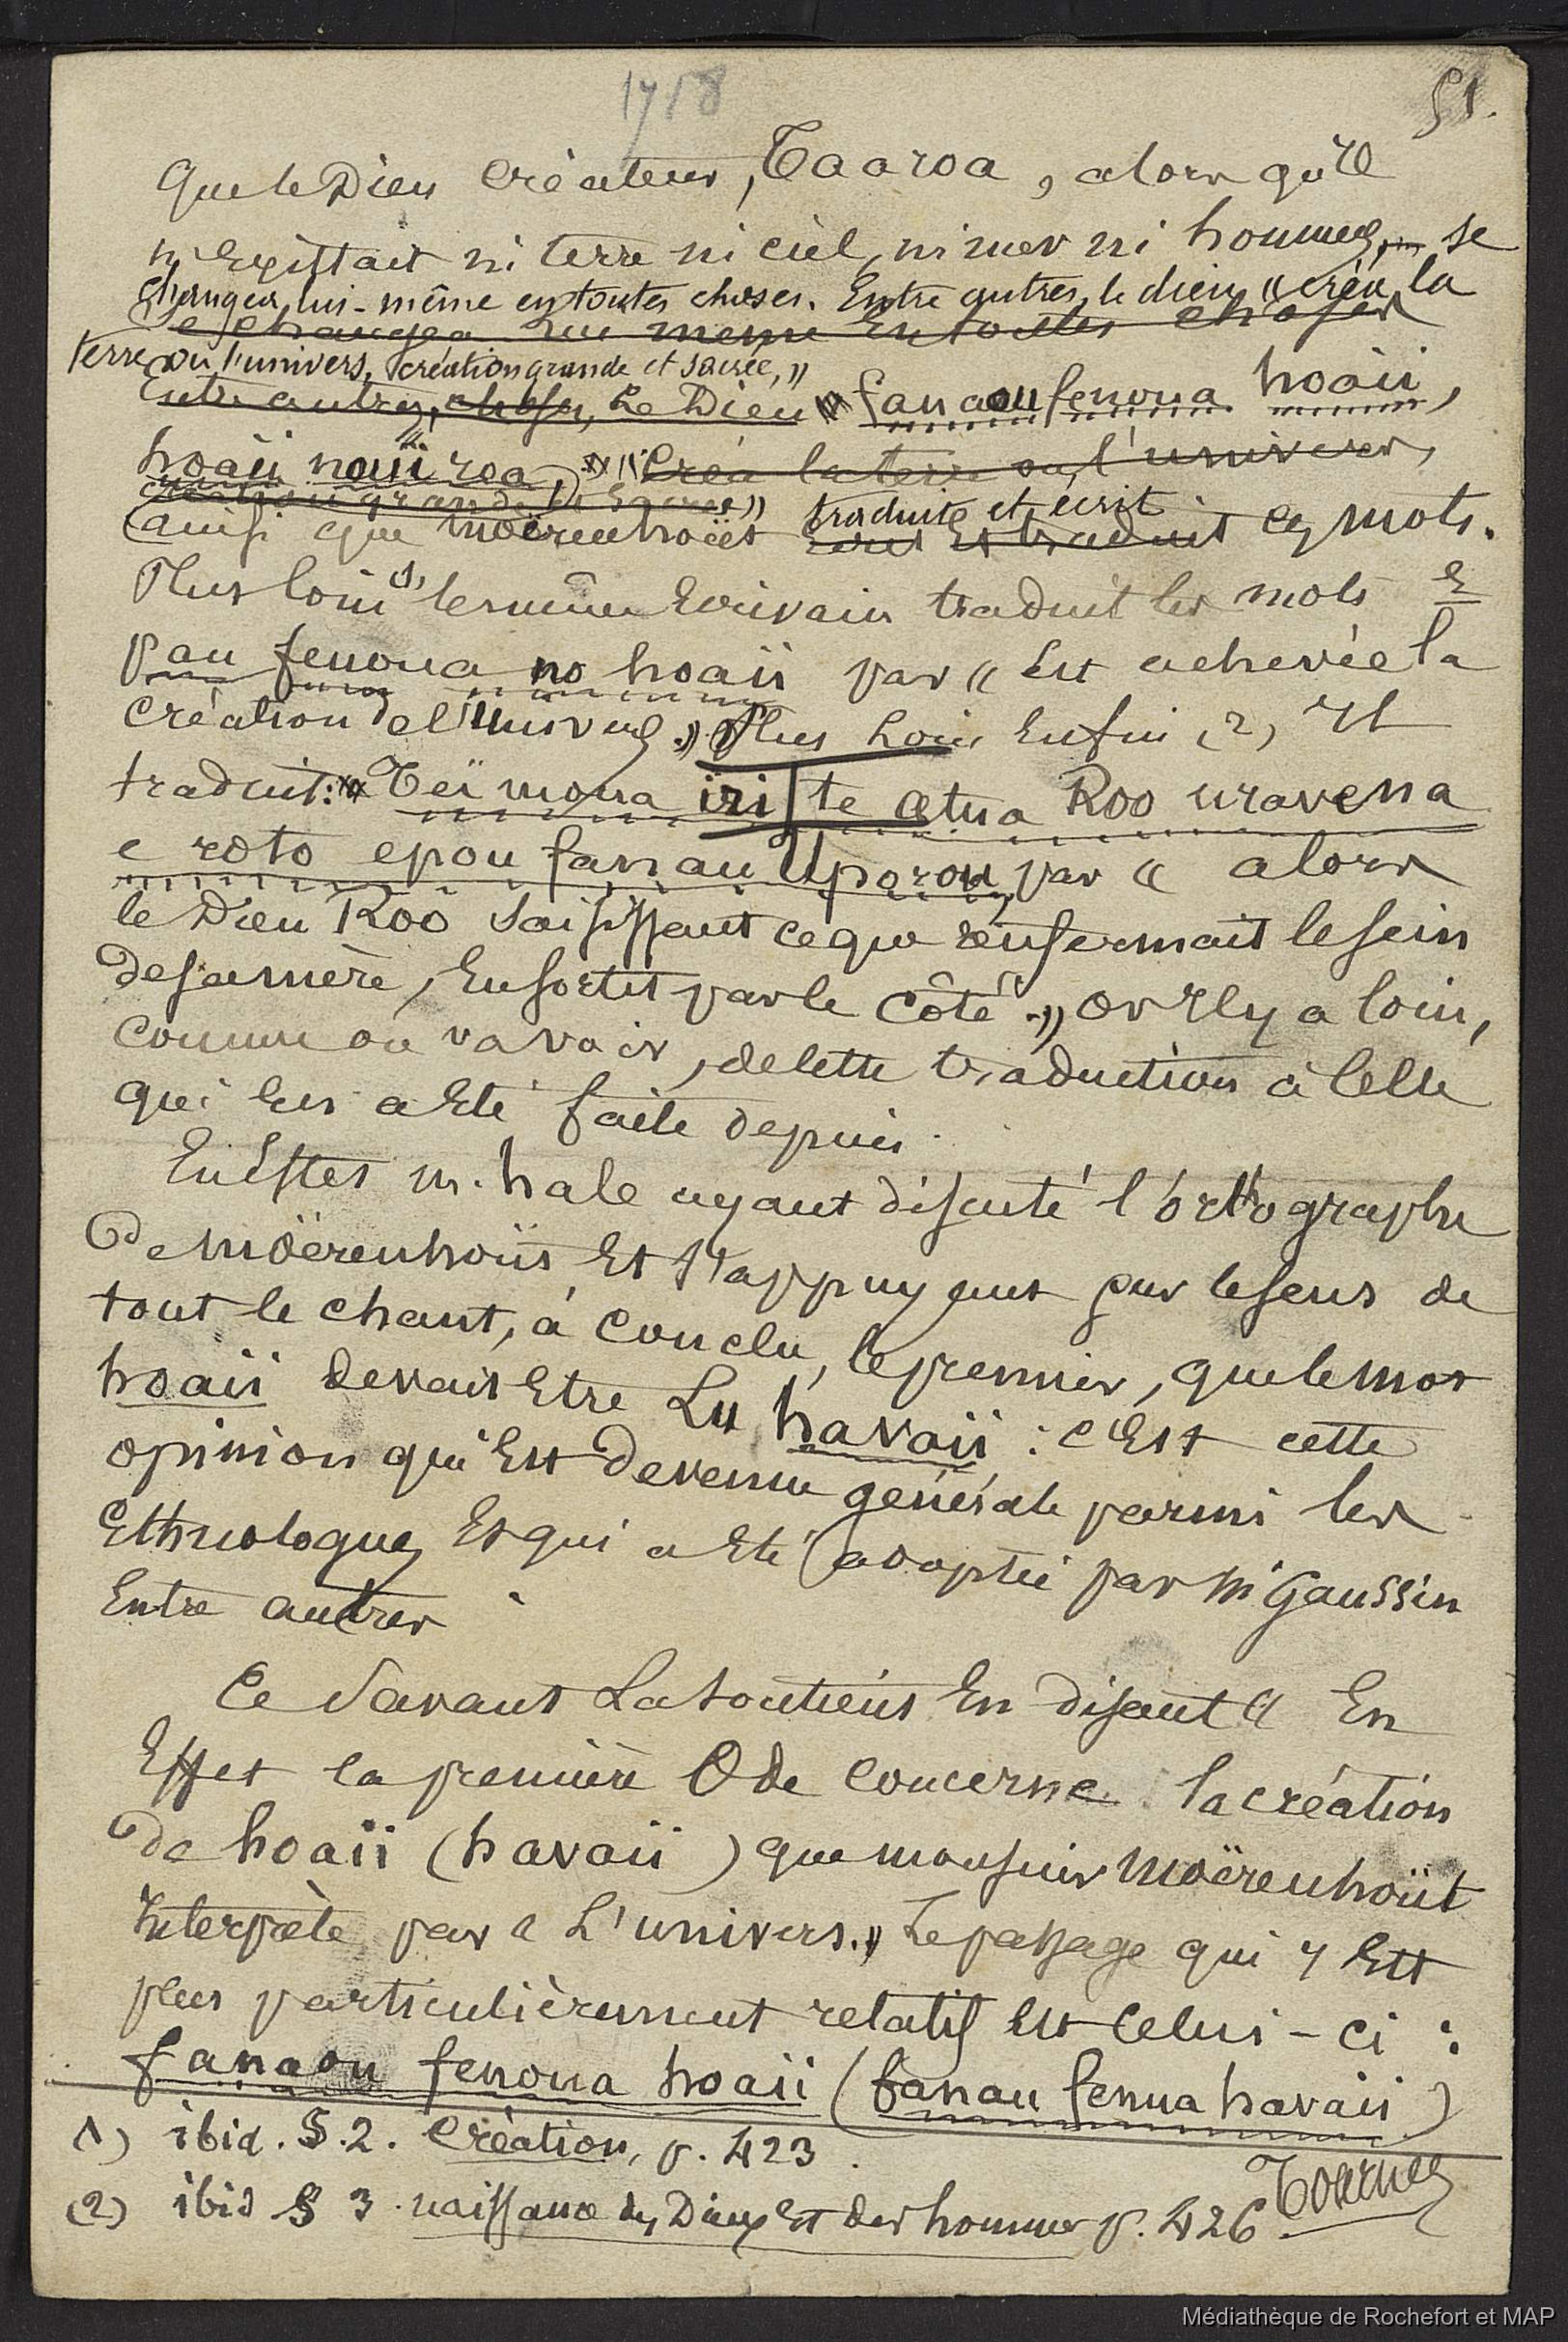 1718
51.
que le Dieu créateur, Taaroa, alors qu'il
n'existait ni terre ni ciel, ni mer ni hommes, se
changea lui-même en toutes choses. Entre autres, le dieu « créa la
se changea lui même en toutes choses
terre ou l'univers, création grande et sacrée, »
Entre autres, choses, le Dieu « fanaou fenoua hoaii,
hoaii nouiroa, » « créa la terre ou l'univers,
création grande et sacrée »
traduit et écrit
ainsi que Moërenhoüt écrit et traduit ces mots.
Plus loin (1, le même écrivain traduit les mots E
pau fenoua no hoaii par « Est achevée la
création de l'univers. » Plus loin enfin (2) il
traduit: « Teï moua iri te atua Roo uravena
e roto epou fanau Uporou, par « alors
le Dieu Roo saisissant ce que renfermait le sein
de sa mère, en sortit par le côté. » or il y a loin,
comme on va voir, de cette traduction à celle
qui en a été faite depuis.
En effet M. hale ayant discuté l'orthographe
de Moërenhoüt et s'appuyant sur le sens de
tout le chant, à conclu, le premier, que le mot
hoaii devait être lu havaii : c'est cette
opinion qui est devenue générale parmi les
Ethnologues et qui a été adoptée par M Gaussin
entre autres.
Ce savant la soutient en disant « En
Effet la première Ode concerne la création
de hoaii (havaii) que monsieur Moërenhoüt
interprète par « L'univers. » Le passage qui y est
plus particulièrement relatif est celui-ci :
fanaou fenoua hoaii (fanau fenua havaii)
1) ibid. §.2. Création, p. 423.
(2) ibid § 3. naissance des Dieux et des hommes p. 426
Tournez
Médiathèque de Rochefort et MAP